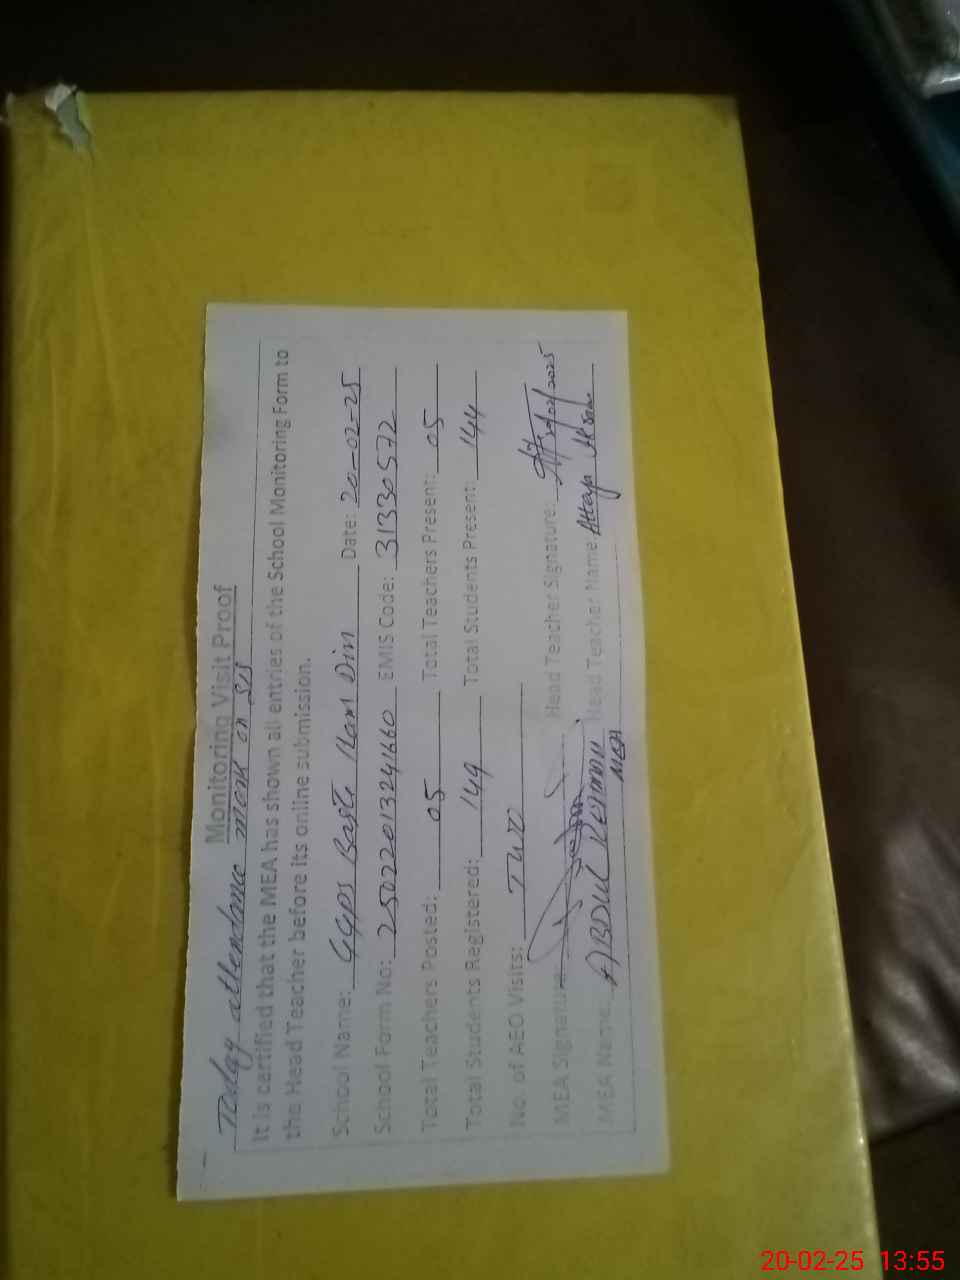 Monitoring Visit Proof
Today attendance mark on SIS
It is certified that the MEA has shown all entries of the School Monitoring Form to
the Head Teacher before its online submission.
School Name: GGPS Basti Nam Din Date: 20-02-25
School Form No: 25022013241660 EMIS Code: 31330572
Total Teachers Posted: 05 Total Teachers Present: 05
Total Students Registered: 149 Total Students Present: 144
No. of AEO Visits: TWO
MEA Signature: Head Teacher Signature: 20/02/2025
MEA Name: ABDUL REHMAN Head Teacher Name:
MEA
20-02-25 13:55